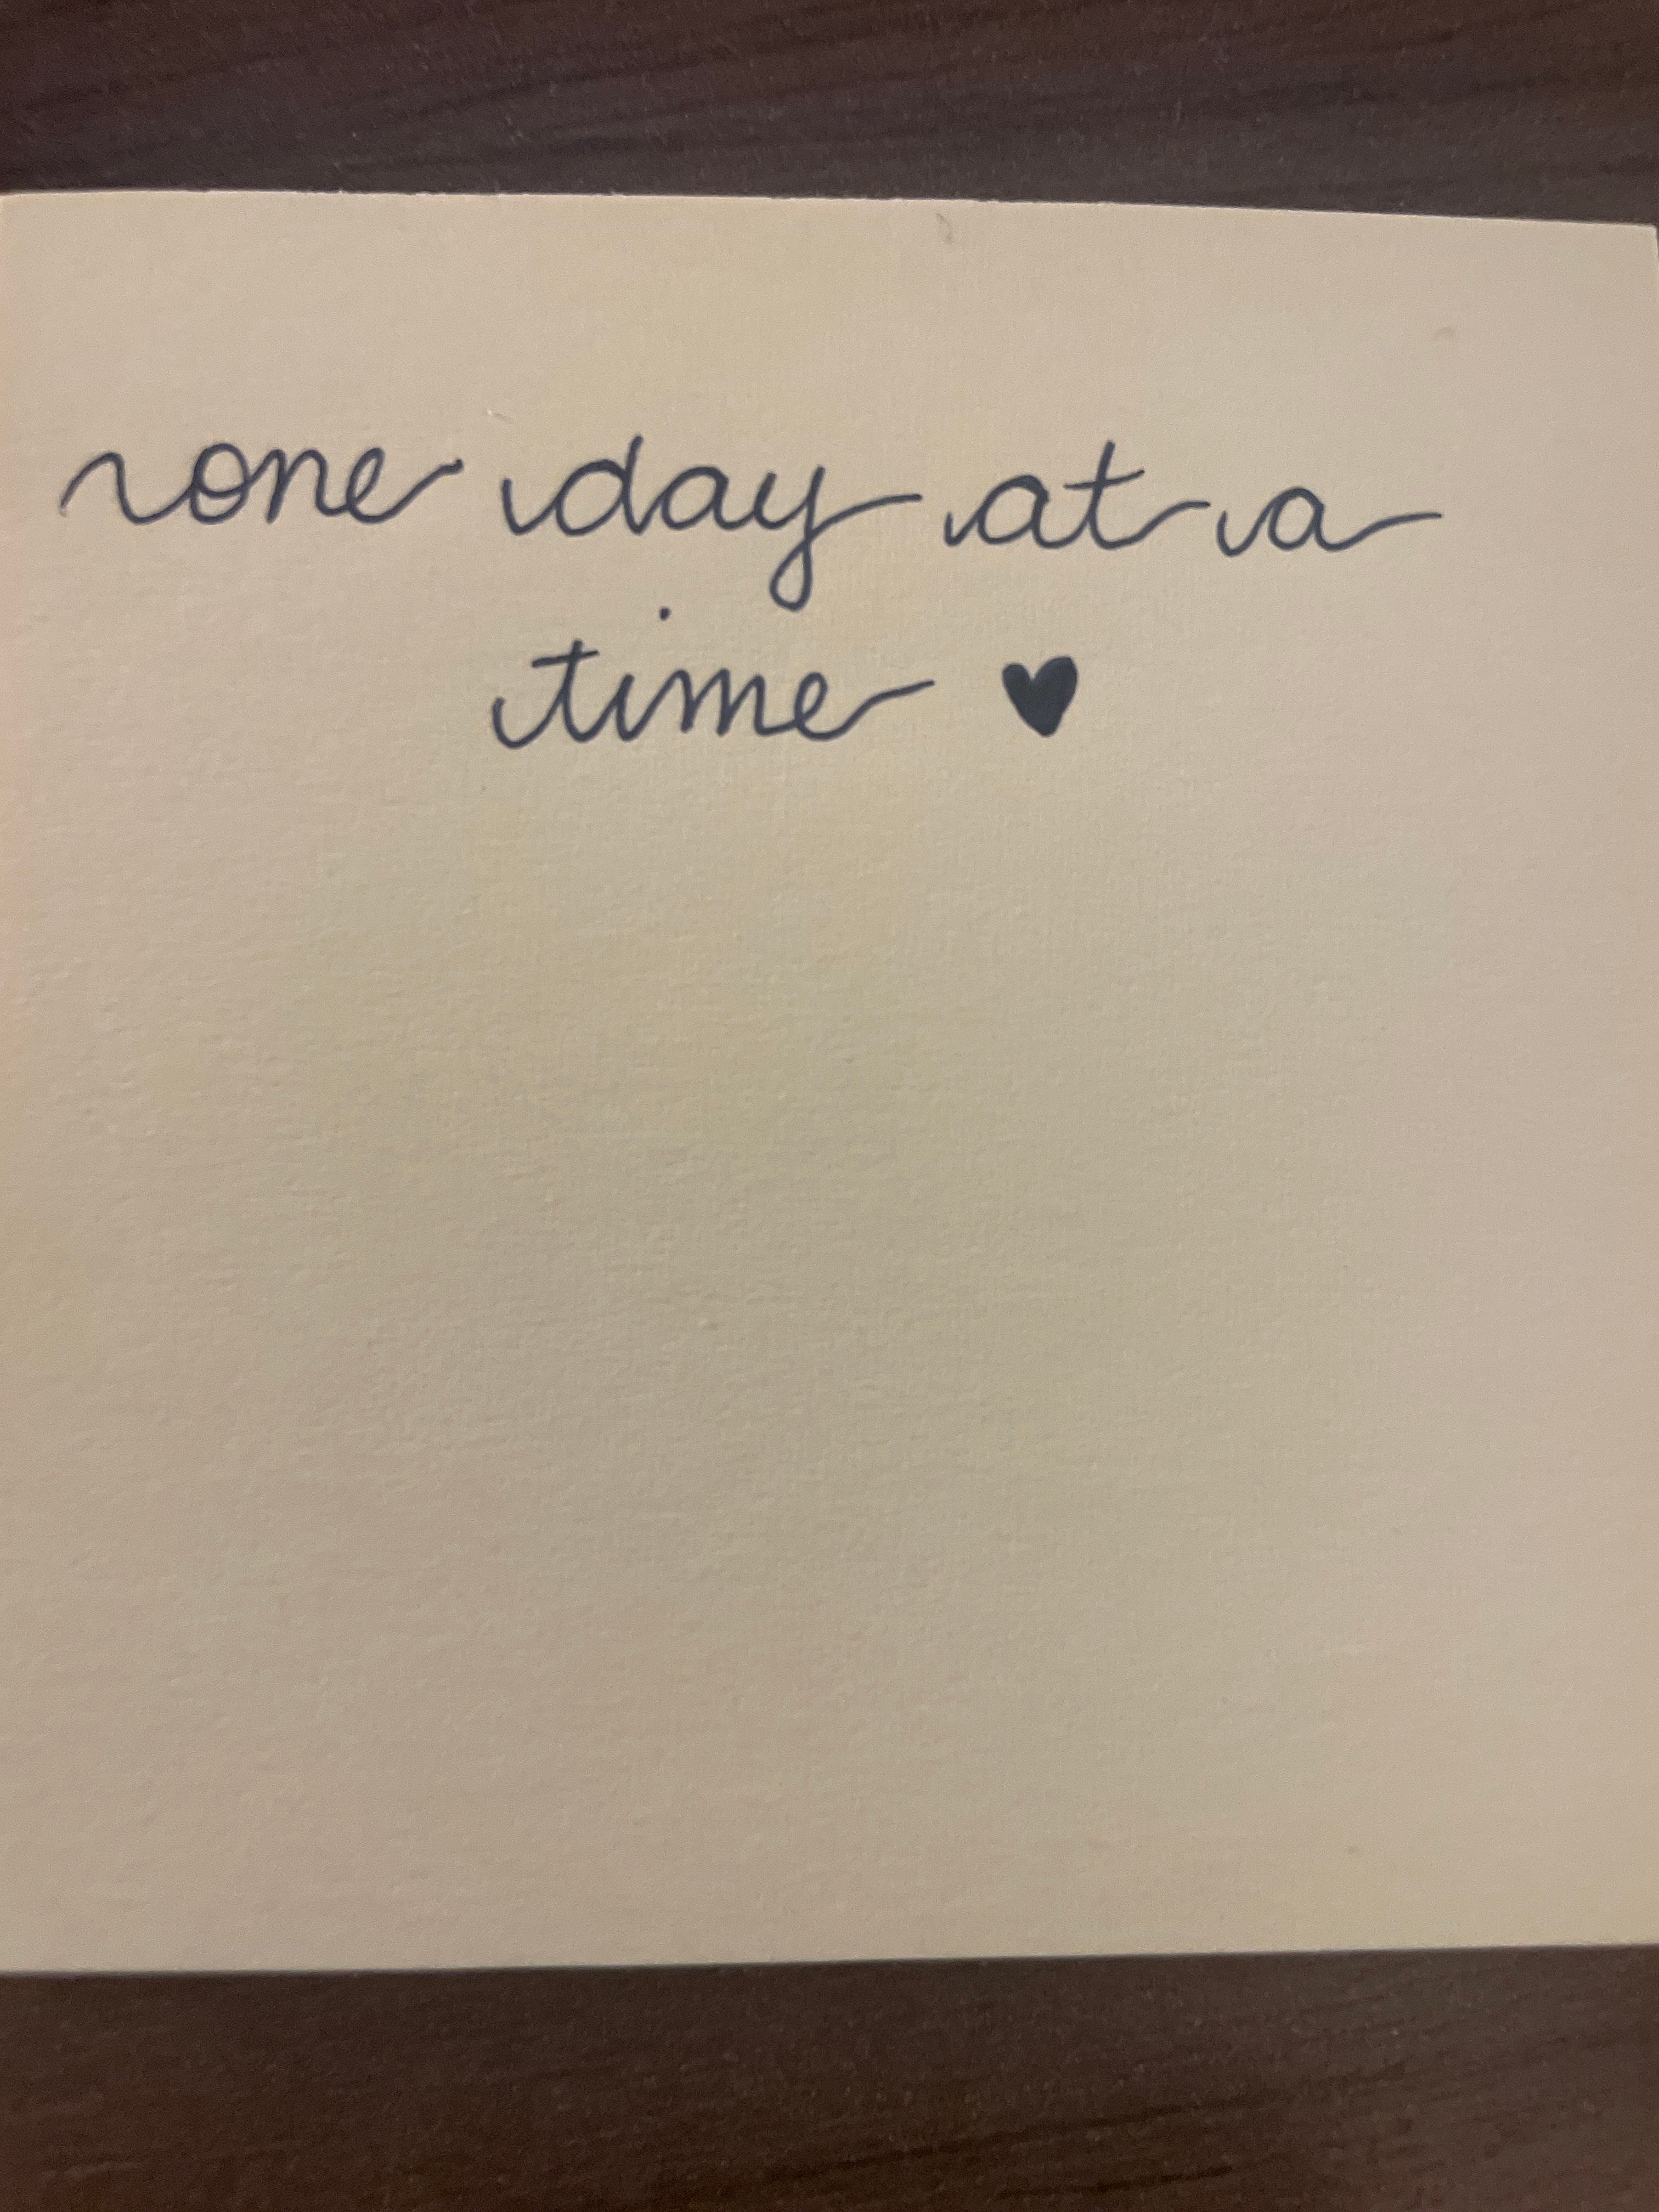 one day at a
time ♥